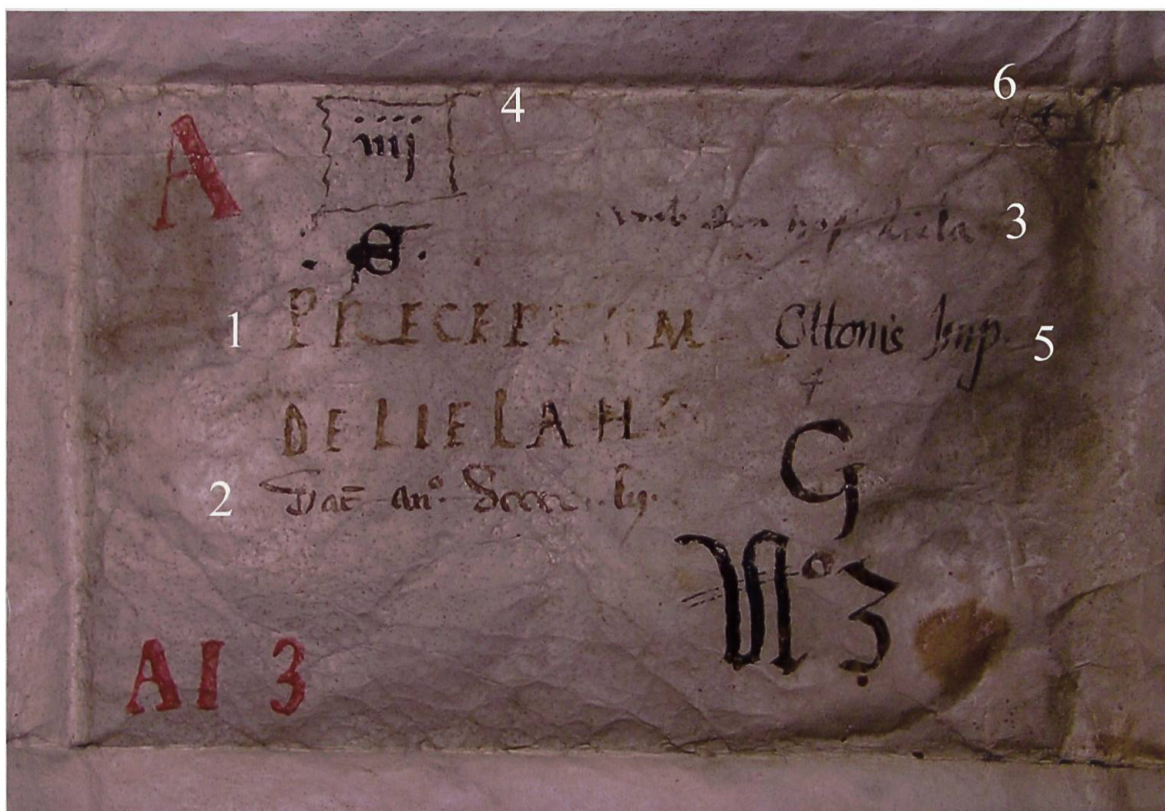 6
4
A iiij
3
. e .
1 PRECEPTUM Ottonis Imp. 5
DE LIELAHE
G
2 Dat an° Dcccc ly.
N° 3
A I 3